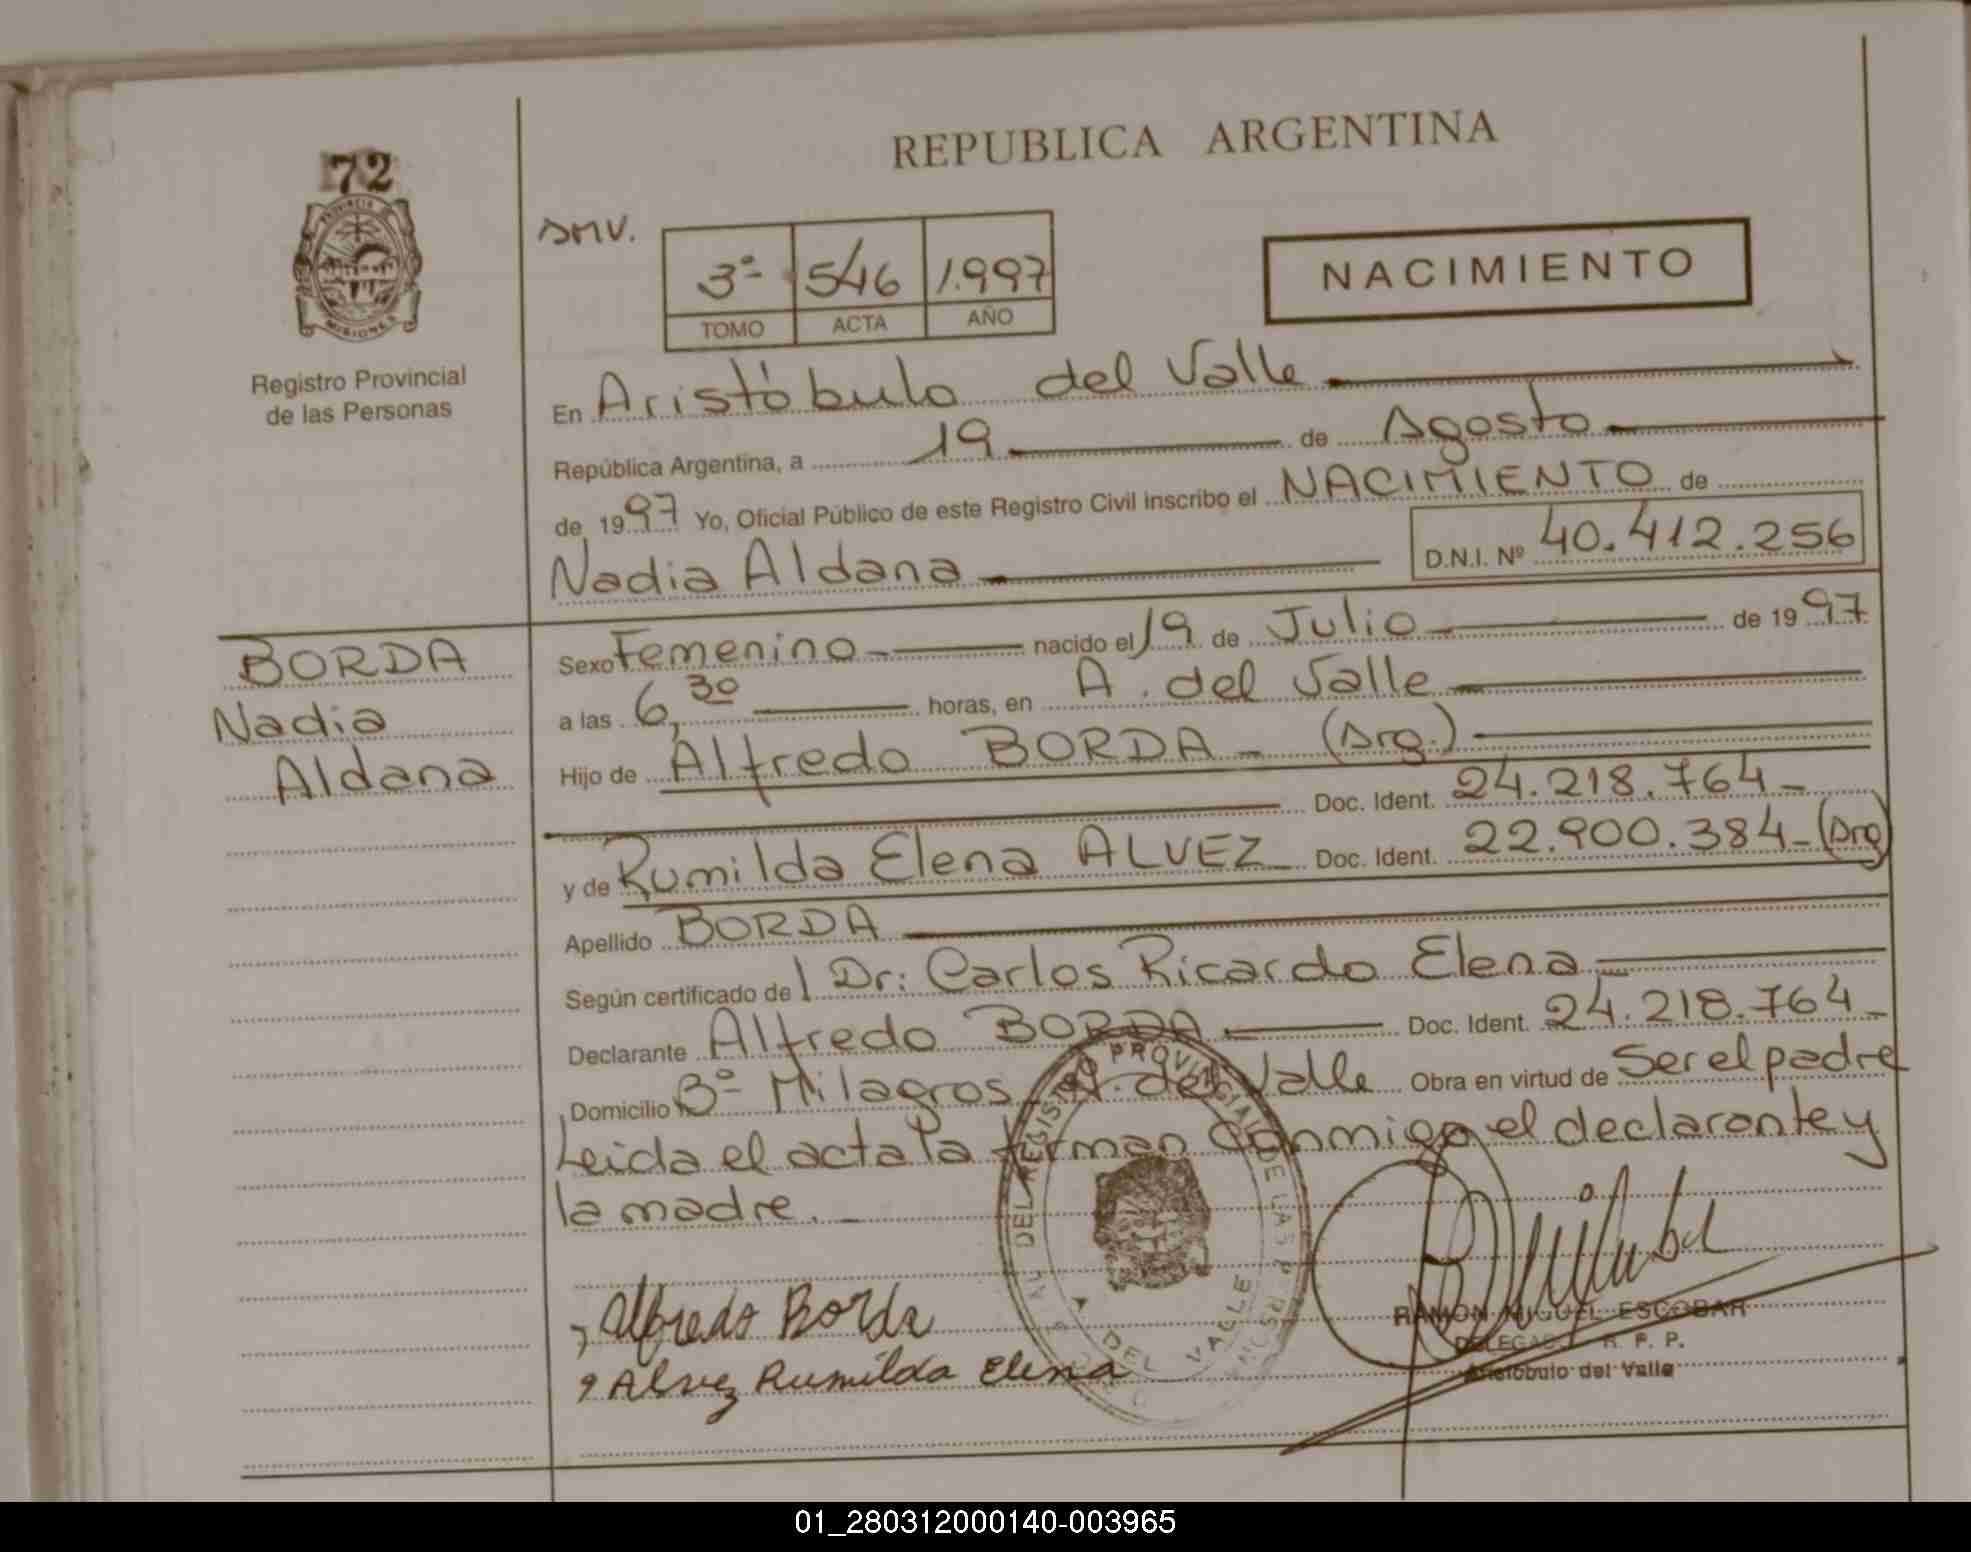 REPUBLICA ARGENTINA
72
PROVINCIA DE
MISIONES
Registro Provincial
de las Personas
3º 546 1.997
TOMO ACTA AÑO
NACIMIENTO
En Aristóbulo del Valle
República Argentina, a 19 de Agosto
de 1997 Yo, Oficial Público de este Registro Civil inscribo el NACIMIENTO de
Nadia Aldana D.N.I. Nº 40.412.256
BORDA
Nadia
Aldana
Sexo Femenino nacido el 19 de Julio de 1997
a las 6,30 horas, en A. del Valle
Hijo de Alfredo BORDA - (Arg.)
Doc. Ident. 24.218.764-
y de Rumilda Elena ALVEZ Doc. Ident. 22.900.384-(Arg)
Apellido BORDA
Según certificado del Dr: Carlos Ricardo Elena
Declarante Alfredo BORDA Doc. Ident. 24.218.764-
Domicilio Bº Milagros A. del Valle Obra en virtud de Ser el padre
Leida el acta la firman conmigo el declarante y
la madre.
DEL REGISTRO PROVINCIAL DE LAS PERSON
DEL VALLE
Alfredo Borda
Alvez Rumilda Elena
RAMON MIGUEL ESCOBAR
R. P. P.
Aristóbulo del Valle
01_280312000140-003965